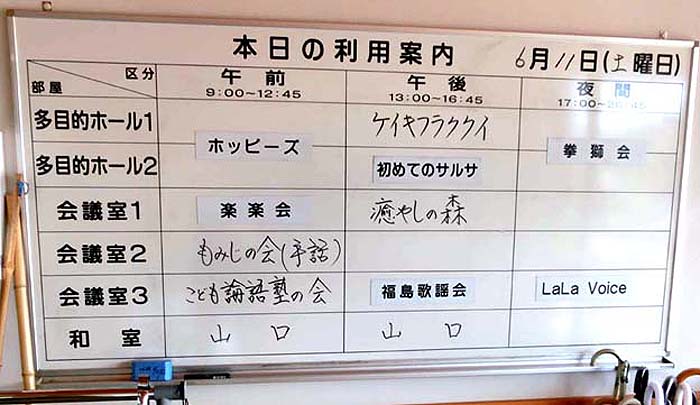 本日の利用案内 6月11日(土曜日)
区分 部屋 午前 9:00~12:45 午後 13:00~16:45 夜間
多目的ホール1 ケイキフラククイ
ホッピーズ 拳獅会
多目的ホール2 初めてのサルサ
会議室1 楽楽会 癒やしの森
会議室2 もみじの会(手話)
会議室3 こども論語塾の会 福島歌謡会 LaLa Voice
和室 山口 山口